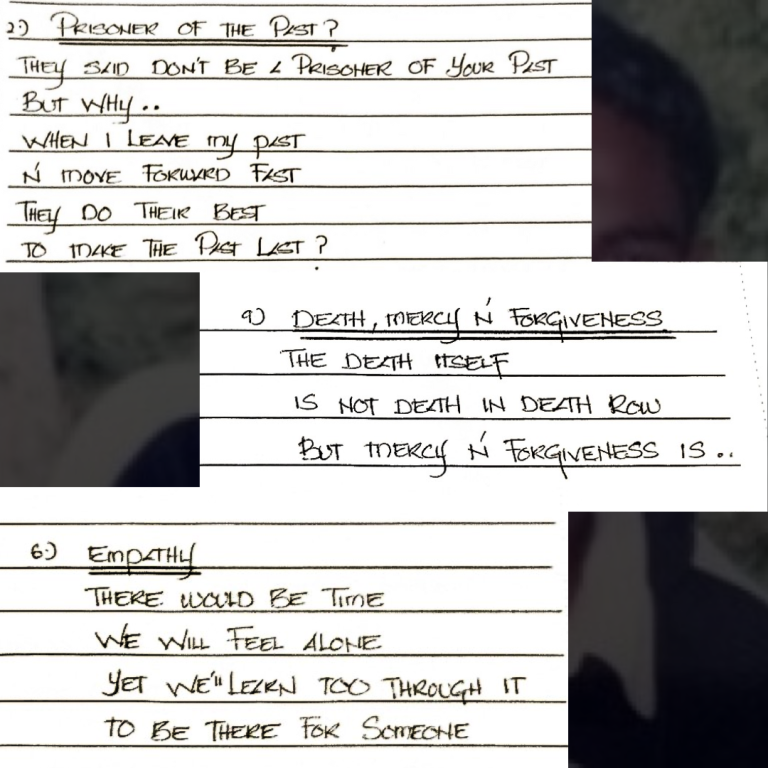 2.) PRISONER OF THE PAST?
THEY SAID DON'T BE A PRISONER OF YOUR PAST
BUT WHY..
WHEN I LEAVE my PAST
N' MOVE FORWARD FAST
THEY DO THEIR BEST
TO MAKE THE PAST LAST?
9) DEATH, MERCY N' FORGIVENESS
THE DEATH ITSELF
IS NOT DEATH IN DEATH ROW
BUT MERCY N' FORGIVENESS IS..
6.) EMPATHY
THERE WOULD BE TIME
WE WILL FEEL ALONE
YET WE'll LEARN TOO THROUGH IT
TO BE THERE FOR SOMEONE